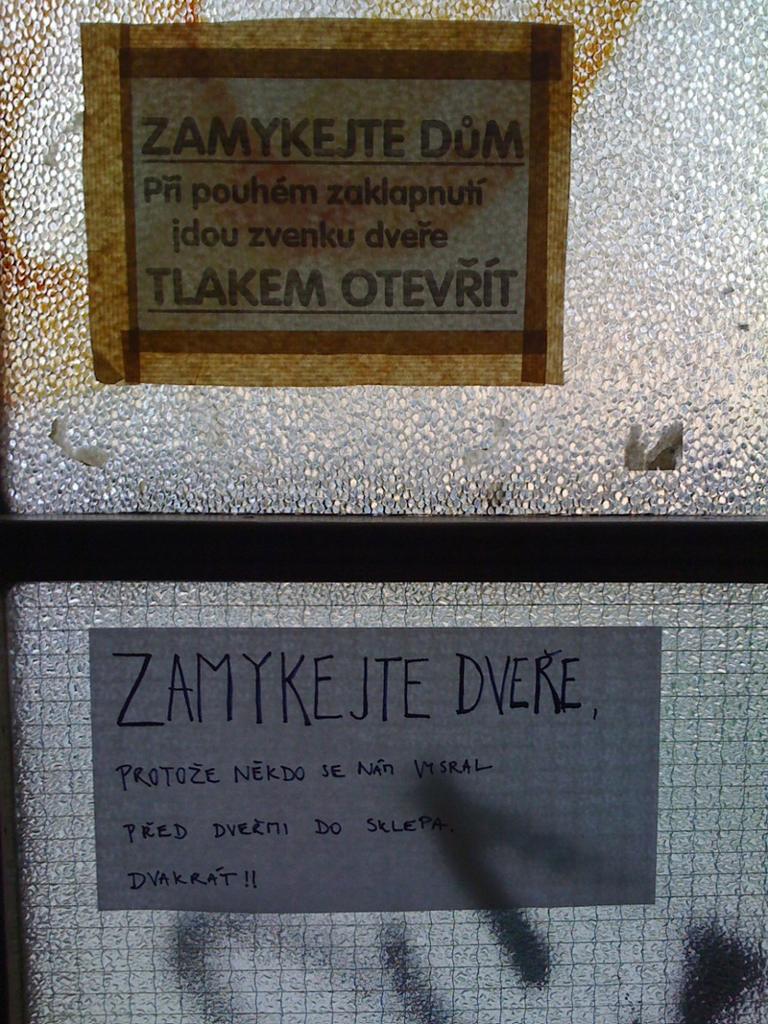 ZAMYKEJTE DŮM
Při pouhém zaklapnutí
jdou zvenku dveře
TLAKEM OTEVŘÍT
ZAMYKEJTE DVEŘE,
PROTOŽE NĚKDO SE NÁM VYSRAL
PŘED DVEŘMI DO SKLEPA.
DVAKRÁT!!